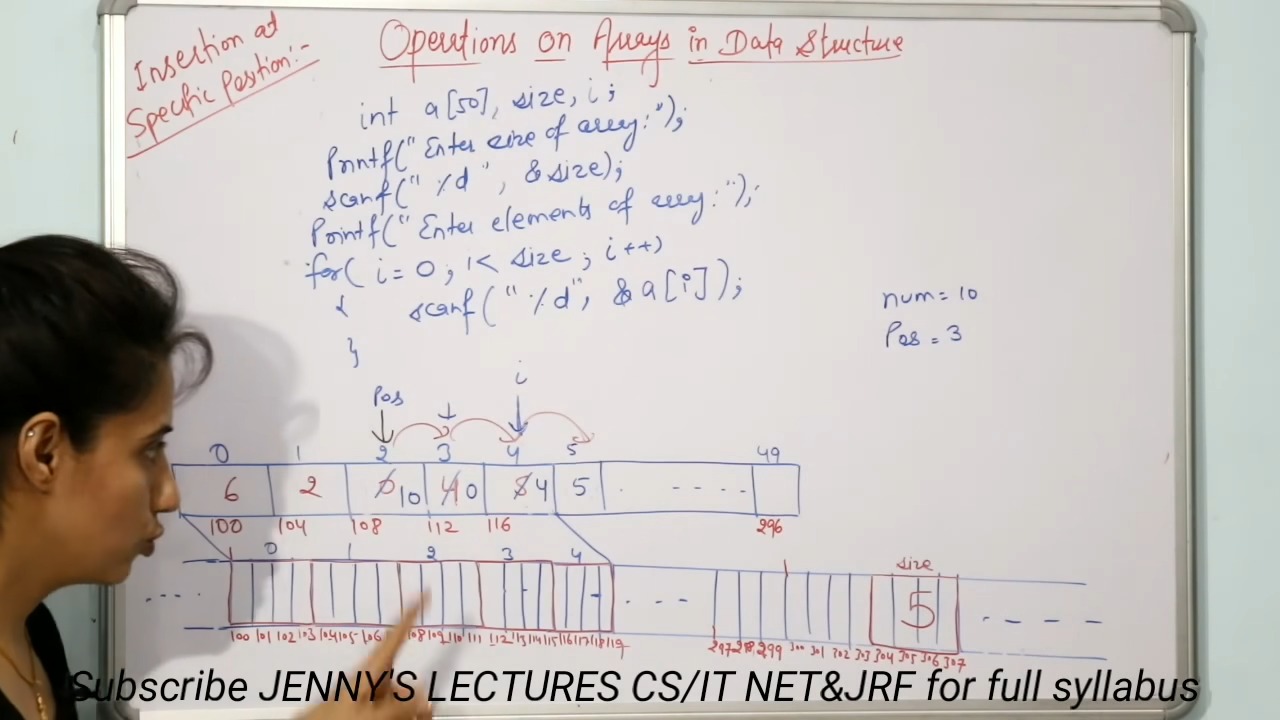 Insertion at
Specific Position:-
Operations on Arrays in Data Structure
int a[50], size, i;
Printf("Enter size of array:");
scanf("%d", &size);
Printf("Enter elements of array:");
for( i=0; i< size; i++)
{ scanf("%d", &a[i]);
}
num = 10
Pos = 3
Pos i
0 1 2 3 4 5 49
6 2 0 10 4 0 8 4 5 . - - - - .
100 104 108 112 116 296
0 1 2 3 4 size
5
100 101 102 103 104 105 106 108 109 110 111 112 113 114 115 116 117 118 119 297 298 299 300 301 302 303 304 305 306 307
Subscribe JENNY'S LECTURES CS/IT NET&JRF for full syllabus